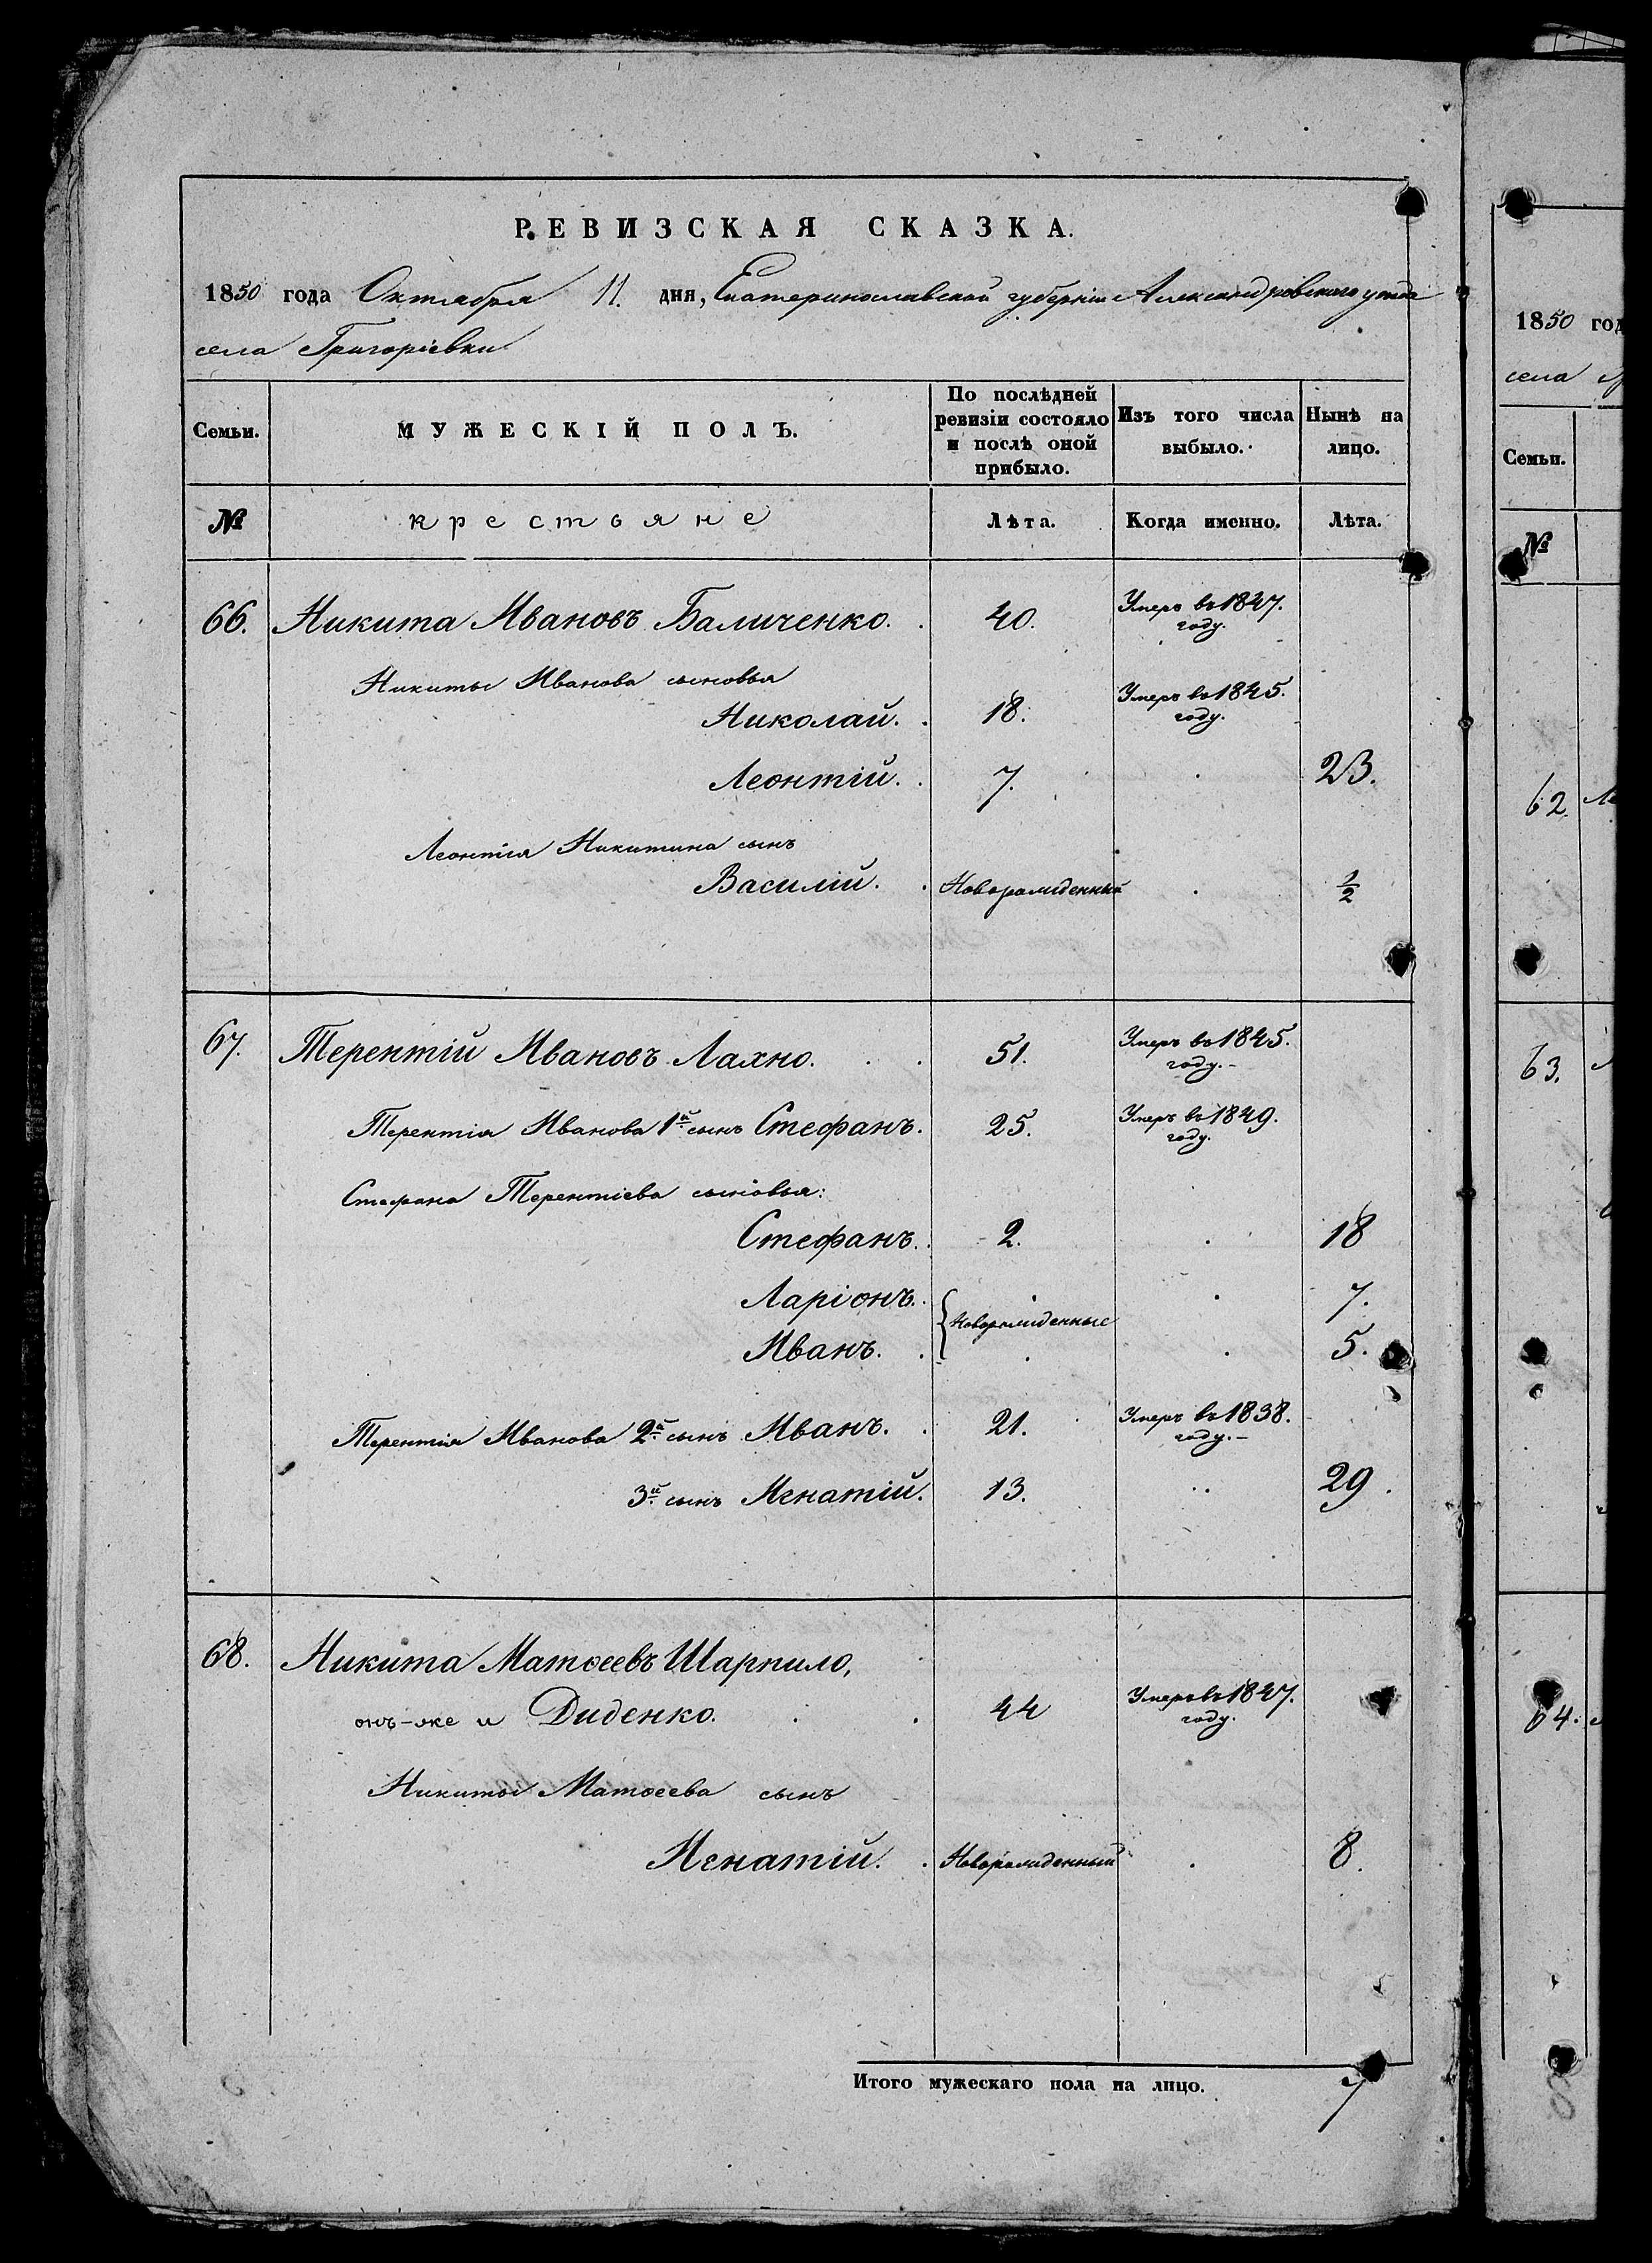 РЕВИЗСКАЯ СКАЗКА.
1850 года Октября 11. дня, Екатеринославской губерніи Александровскаго уезда
села Григоріевки
Семьи. МУЖЕСКІЙ ПОЛЪ. По послѣдней ревизіи состояло и послѣ оной прибыло. Изъ того числа выбыло. Нынѣ на лицо.
№ крестьяне Лѣта. Когда именно. Лѣта.
66. Никита Ивановъ Баличенко. 40. Умеръ въ 1847. году.
Никиты Иванова сыновья
Николай. 18. Умеръ въ 1845. году.
Леонтій. 7. 23.
Леонтія Никитина сынъ
Василій. Новорожденный ½
67. Терентій Ивановъ Лахно. 51. Умеръ въ 1845. году.
Терентія Иванова 1й сынъ Стефанъ. 25. Умеръ въ 1849. году.
Стефана Терентіева сыновья:
Стефанъ. 2. 18
Ларіонъ. 7.
Новорожденные
Иванъ. 5.
Терентія Иванова 2й сынъ Иванъ. 21. Умеръ въ 1838. году.
3й сынъ Игнатій. 13. 29.
68. Никита Матѳеевъ Шарпило,
онъ-же и Диденко. 44 Умеръ въ 1847. году.
Никиты Матѳеева сынъ
Игнатій. Новорожденный 8.
Итого мужескаго пола на лицо. 7
1850 год
села
Семьи.
№
62.
63.
64.